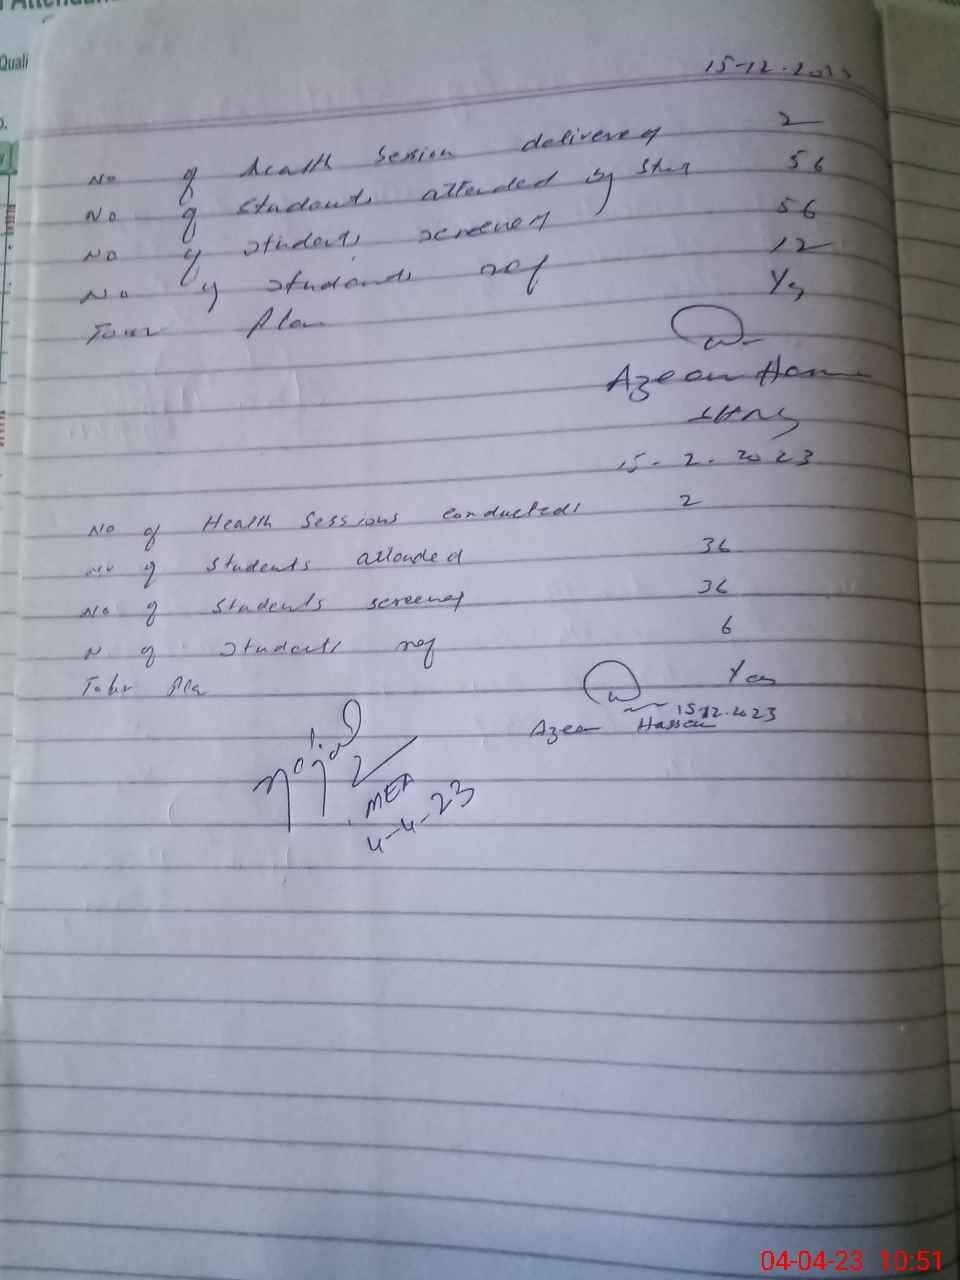 Quali
15-12-2022
No of health Session delivered 2
No of students attended by 56
No of students screened 56
No of students ref 12
Tour Plan Yes
Azeem
15-2-2023
No of Health Sessions conducted 2
No of students attended 36
No of students screened 36
N of students ref 6
Tour Pla Yes
15-12-2023
Azeem Hassan
MEA
4-4-23
04-04-23 10:51